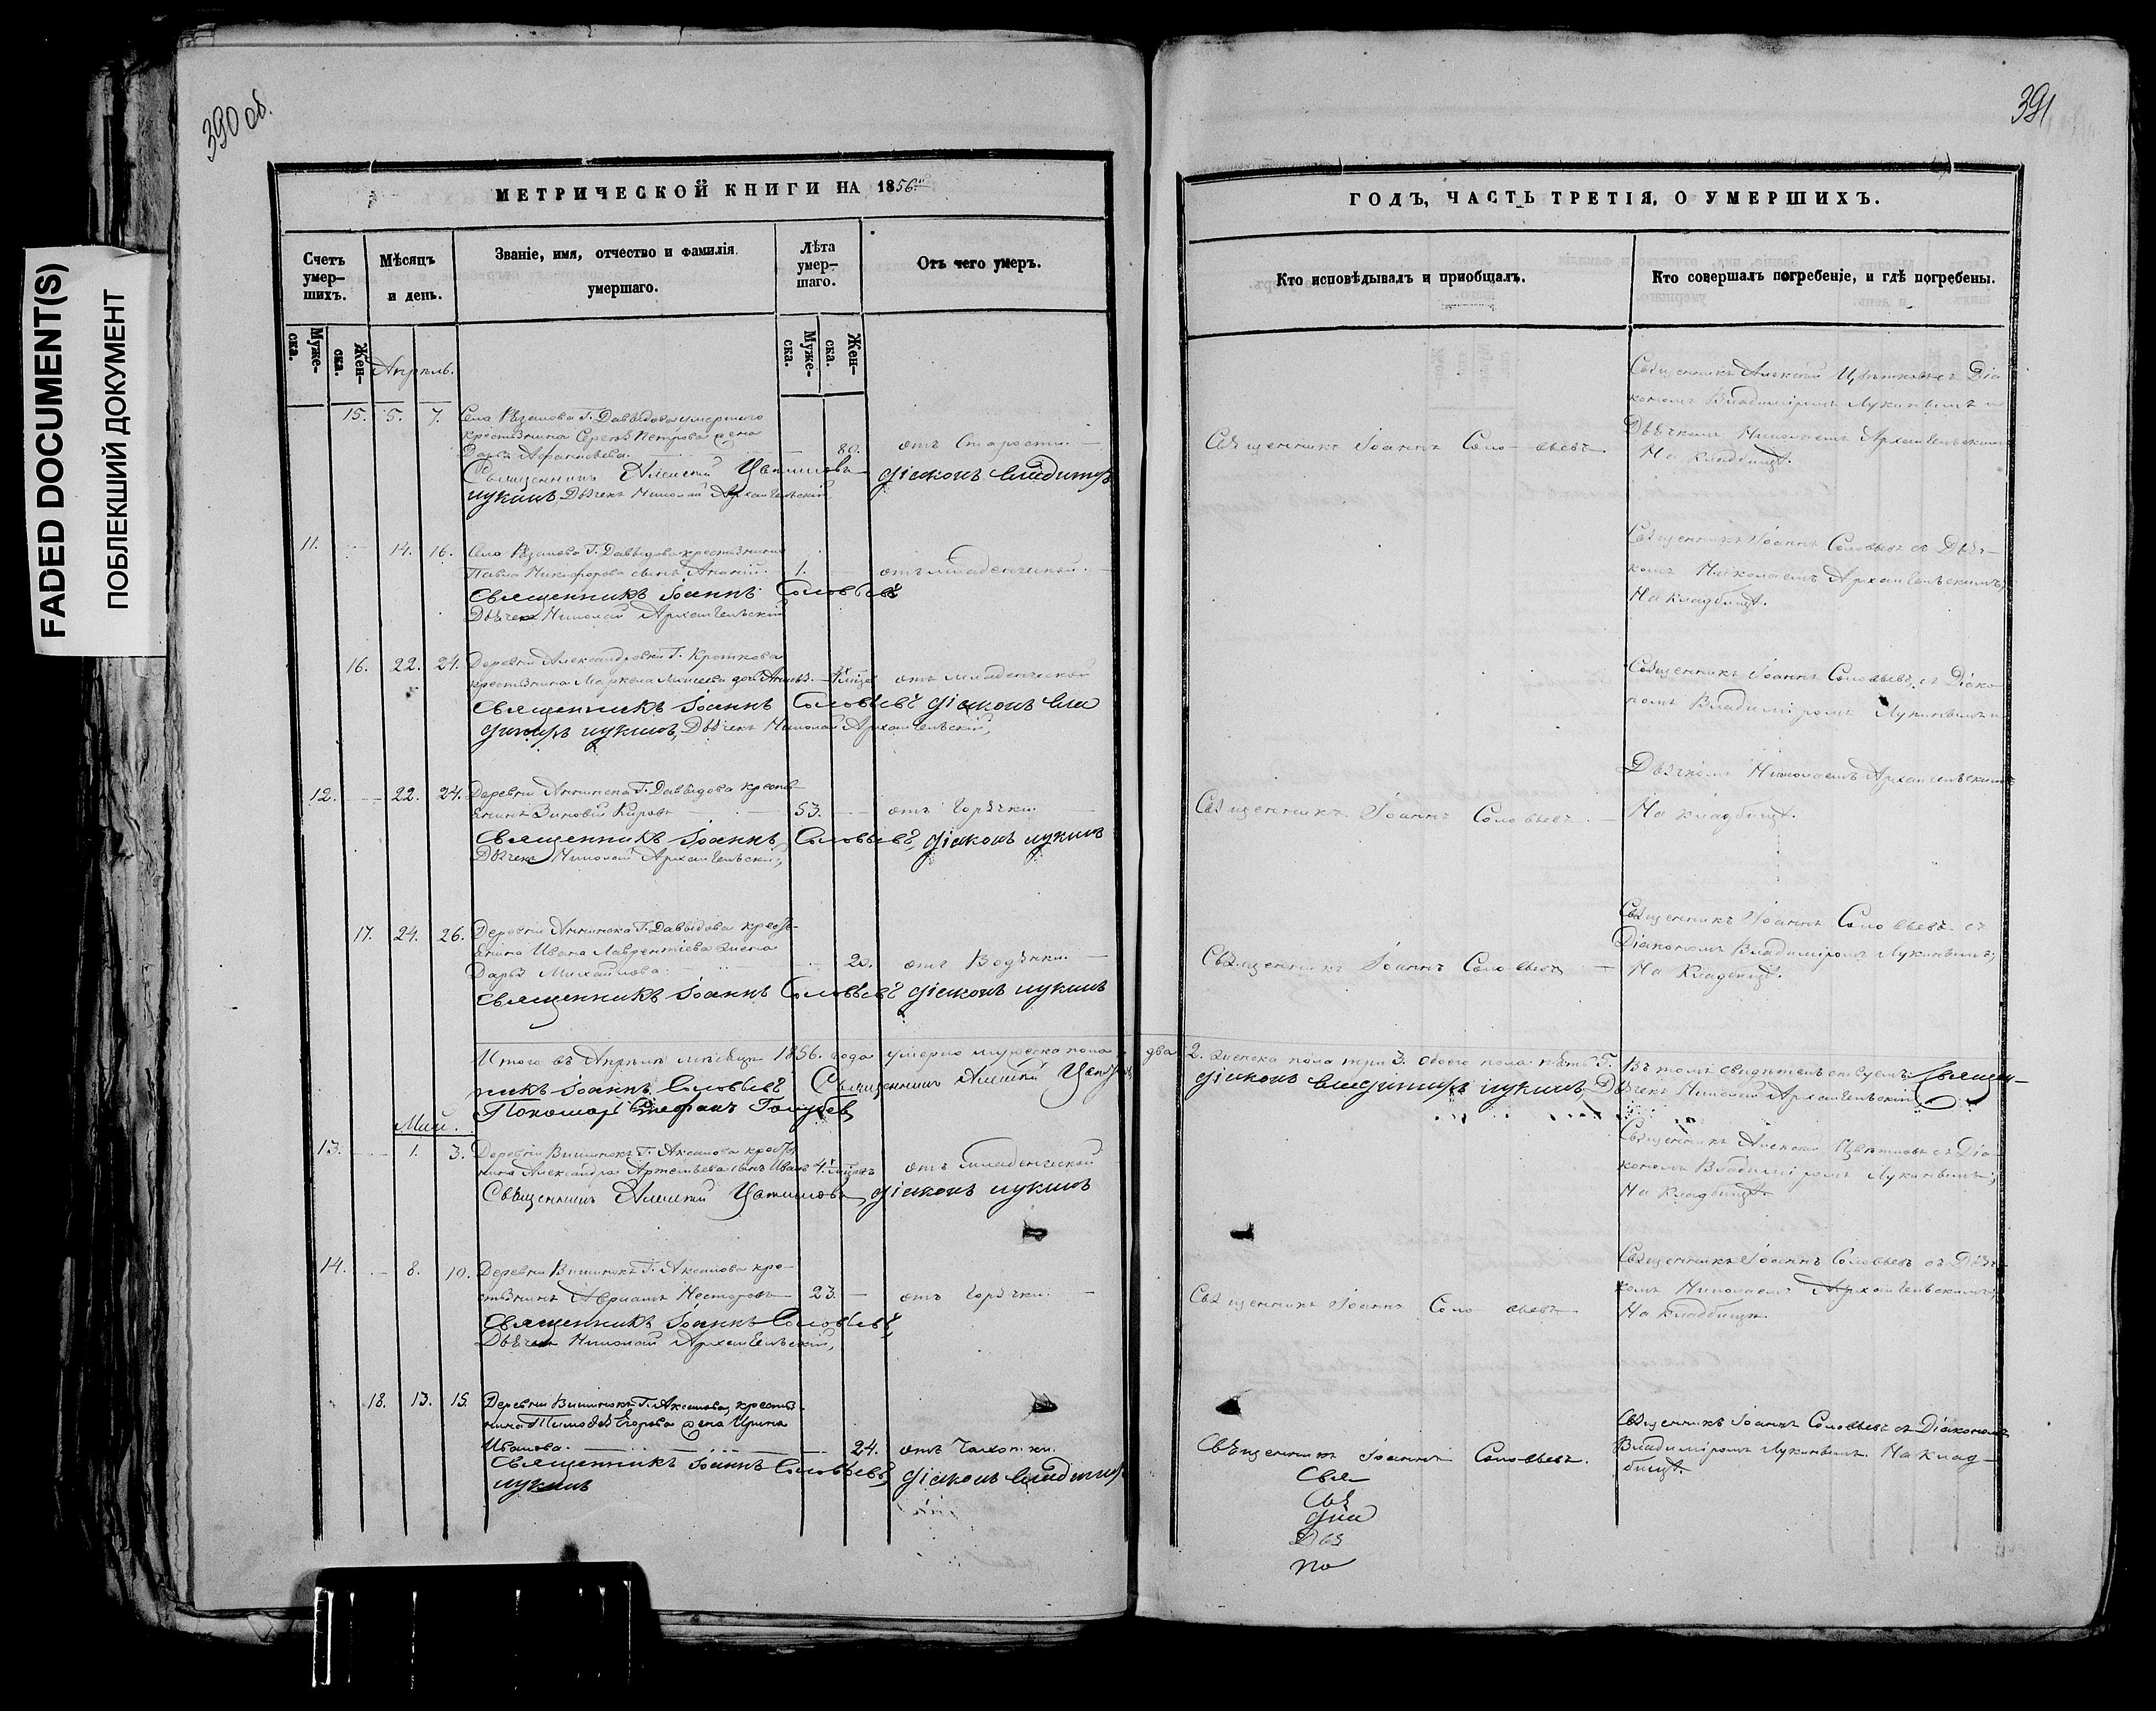 390 об.
391
FADED DOCUMENT(S)
ПОБЛЕКШИЙ ДОКУМЕНТ
МЕТРИЧЕСКОЙ КНИГИ НА 1856й
ГОДЪ, ЧАСТЬ ТРЕТІЯ, О УМЕРШИХЪ.
Счетъ умер-шихъ.
Мѣсяцъ и день.
Званіе, имя, отчество и фамилія умершаго.
Лѣта умер-шаго.
Отъ чего умеръ.
Кто исповѣдывалъ и пріобщалъ.
Кто совершалъ погребеніе, и гдѣ погребены.
Муже-ска.
Жен-ска.
Муже-ска.
Жен-ска.
Апрѣль.
15. 5. 7. Села Рѣзанова Г. Давыдова умершаго
крестьянина Сергѣя Петрова жена
Дарья Афанасьева. 80. отъ Старости.
Священникъ Алексій Цвѣтковъ Діаконъ Владиміръ
Лукинъ, Дьячекъ Николай Архангельскій
Священникъ Іоаннъ Соловьевъ.
Священникъ Алексій Цвѣтковъ съ Діа-
кономъ Владиміромъ Лукинымъ и
Дьячкомъ Николаемъ Архангельскимъ
На кладбищѣ.
11. 14. 16. Села Рѣзанова Г. Давыдова крестьянина
Павла Никифорова сынъ Ананій. 1. отъ младенческой.
Священникъ Іоаннъ Соловьевъ
Дьячекъ Николай Архангельскій
Священникъ Іоаннъ Соловьевъ съ Дьяч-
комъ Николаемъ Архангельскимъ;
На кладбищѣ.
16. 22. 24. Деревни Александровки Г. Кроткова
крестьянина Маркела дочь отъ младенческой
Священникъ Іоаннъ Соловьевъ Діаконъ Вла
диміръ Лукинъ, Дьячекъ Николай Архангельскій,
Священникъ Іоаннъ Соловьевъ, съ Діако-
номъ Владиміромъ Лукинымъ и
Дьячкомъ Николаемъ Архангельскимъ
На кладбищѣ.
12. 22. 24. Деревни Аннинска Г. Давыдова кресть-
янинъ Зиновій Кировъ 53. отъ Горячки.
Священникъ Іоаннъ Соловьевъ, Діаконъ Лукинъ
Дьячекъ Николай Архангельскій,
Священникъ Іоаннъ Соловьевъ.
17. 24. 26. Деревни Аннинска Г. Давыдова кресть-
янина Ивана Лаврентіева жена
Дарья Михайлова. 20. отъ Водянки.
Священникъ Іоаннъ Соловьевъ Діаконъ Лукинъ
Священникъ Іоаннъ Соловьевъ
Священникъ Іоаннъ Соловьевъ съ
Діакономъ Владиміромъ Лукинымъ;
На Кладбищѣ.
Итого въ Апрѣлѣ мѣсяцѣ 1856. года умерло мужеска пола два 2. женска пола три 3. обоего пола пять 5. Въ томъ свидѣтельствуемъ: Священ-
никъ Іоаннъ Соловьевъ Священникъ Алексій Цвѣтковъ Діаконъ Владиміръ Лукинъ, Дьячекъ Николай Архангельскій
Пономарь Стефанъ
Май.
13. 1. 3. Деревни Вишенокъ Г. Аксакова кресть-
нина Александра Артемьева сынъ Иванъ отъ Младенческой
Священникъ Алексій Цвѣтковъ, Діаконъ Лукинъ
Священникъ Алексій Цвѣтковъ съ Діа-
кономъ Владиміромъ Лукинымъ;
На кладбищѣ
14. 8. 10. Деревни Вишенокъ Г. Аксакова кре-
стьянинъ Несторовъ 23. отъ Горячки.
Священникъ Іоаннъ Соловьевъ,
Дьячекъ Николай Архангельскій,
Священникъ Іоаннъ Соловьевъ
Священникъ Іоаннъ Соловьевъ съ Дьяч-
комъ Николаемъ Архангельскимъ;
На Кладбищѣ.
18. 13. 15. Деревни Вишенокъ Г. Аксакова, кресть-
нина Тимофея Егорова жена Ирина
Иванова. 24. отъ Чахотки.
Священникъ Іоаннъ Соловьевъ, Діаконъ Владиміръ
Лукинъ
Священникъ Іоаннъ Соловьевъ.
Священникъ Іоаннъ Соловьевъ съ Діакономъ
Владиміромъ Лукинымъ. На клад-
бищѣ.
Свя
Свя
Діа
Дья
По